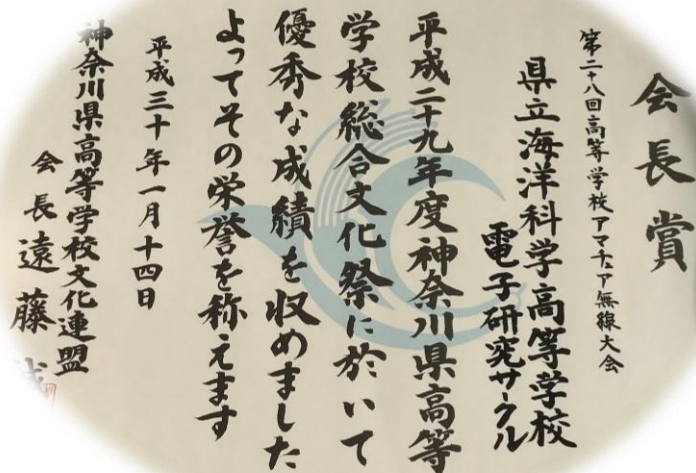 会長賞
第二十八回高等学校アマチュア無線大会
県立海洋科学高等学校
電子研究サークル
平成二十九年度神奈川県高等
学校総合文化祭に於いて
優秀な成績を収めました
よってその栄誉を称えます
平成三十年一月十四日
神奈川県高等学校文化連盟
会長遠藤